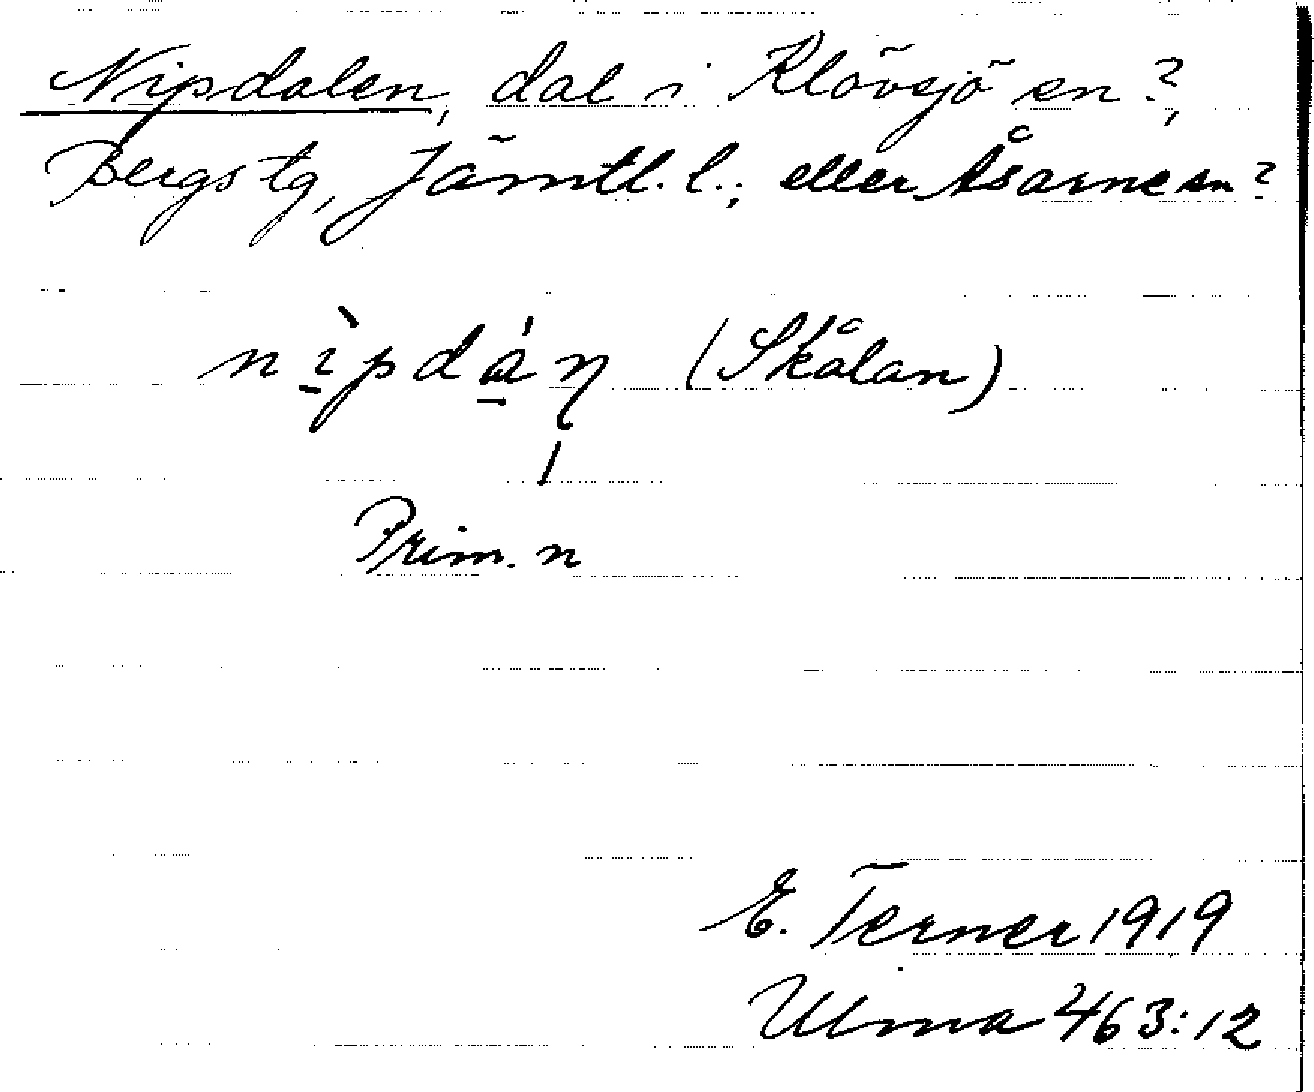 Nipdalen, dal i Klövsjö sn?,
Bergs tg, Jämtl. l.; eller Åsarne sn?
nìpdáņ (Skålan)
Prim. n
E. Terner 1919
Ulma 463:12